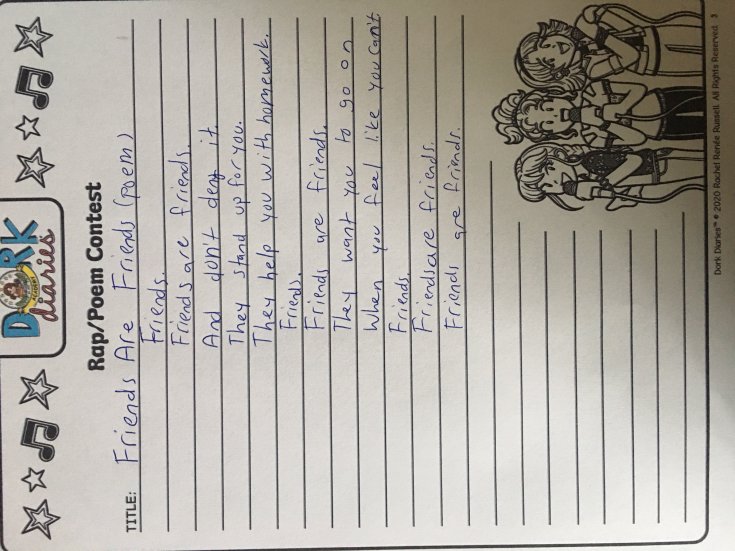 DORK
diaries
Rap/Poem Contest
TITLE: Friends Are Friends (poem)
Friends.
Friends are friends.
And don't deny it.
They stand up for you.
They help you with homework.
Friends.
Friends are friends.
They want you to go on
When you feel like you can't
Friends.
Friends are friends.
Friends are friends.
Dork Diaries™ © 2020 Rachel Renée Russell. All Rights Reserved 3